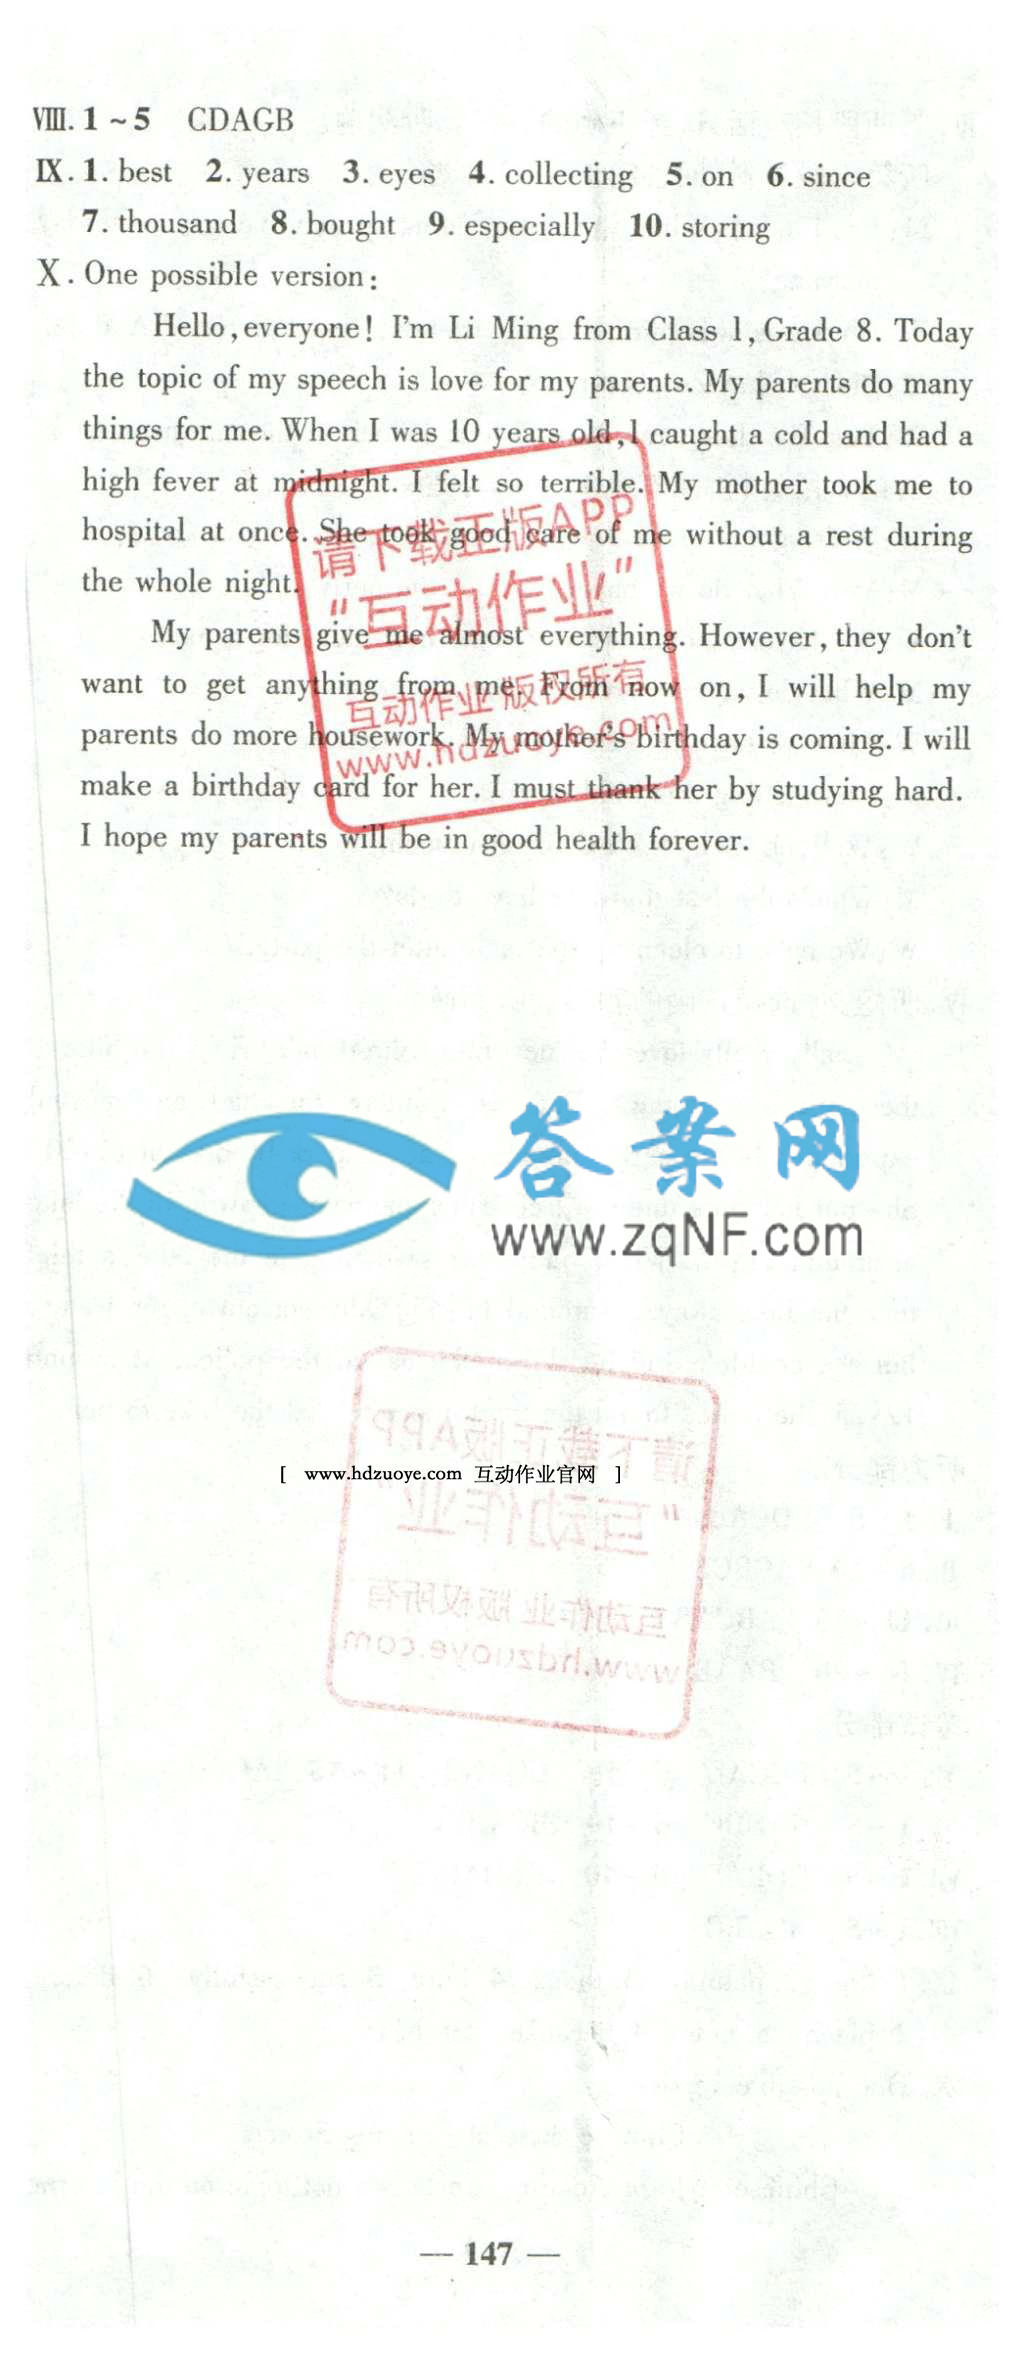 Ⅷ. 1 ~ 5 CDAGB
Ⅸ. 1. best 2. years 3. eyes 4. collecting 5. on 6. since
7. thousand 8. bought 9. especially 10. storing
Ⅹ. One possible version:
Hello, everyone! I'm Li Ming from Class 1, Grade 8. Today
the topic of my speech is love for my parents. My parents do many
things for me. When I was 10 years old, I caught a cold and had a
high fever at midnight. I felt so terrible. My mother took me to
hospital at once. She took good care of me without a rest during
the whole night.
My parents give me almost everything. However, they don't
want to get anything from me. From now on, I will help my
parents do more housework. My mother's birthday is coming. I will
make a birthday card for her. I must thank her by studying hard.
I hope my parents will be in good health forever.
请下载正版APP
"互动作业"
互动作业 版权所有
www.hdzuoye.com
答案网
www.zqNF.com
请下载正版APP
"互动作业"
互动作业 版权所有
www.hdzuoye.com
[ www.hdzuoye.com 互动作业官网 ]
— 147 —